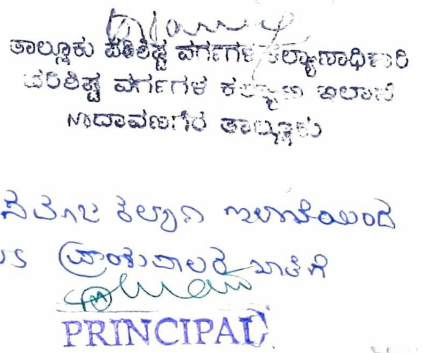 ತಾಲ್ಲೂಕು ಪರಿಶಿಷ್ಟ ವರ್ಗಗಳ ಕಲ್ಯಾಣಾಧಿಕಾರಿ
ಪರಿಶಿಷ್ಟ ವರ್ಗಗಳ ಕಲ್ಯಾಣ ಇಲಾಖೆ
ದಾವಣಗೆರೆ ತಾಲ್ಲೂಕು
ಕಲ್ಯಾಣ ಇಲಾಖೆಯಿಂದ
ಪ್ರಾಂಶುಪಾಲರ ಖಾತೆಗೆ
PRINCIPAL